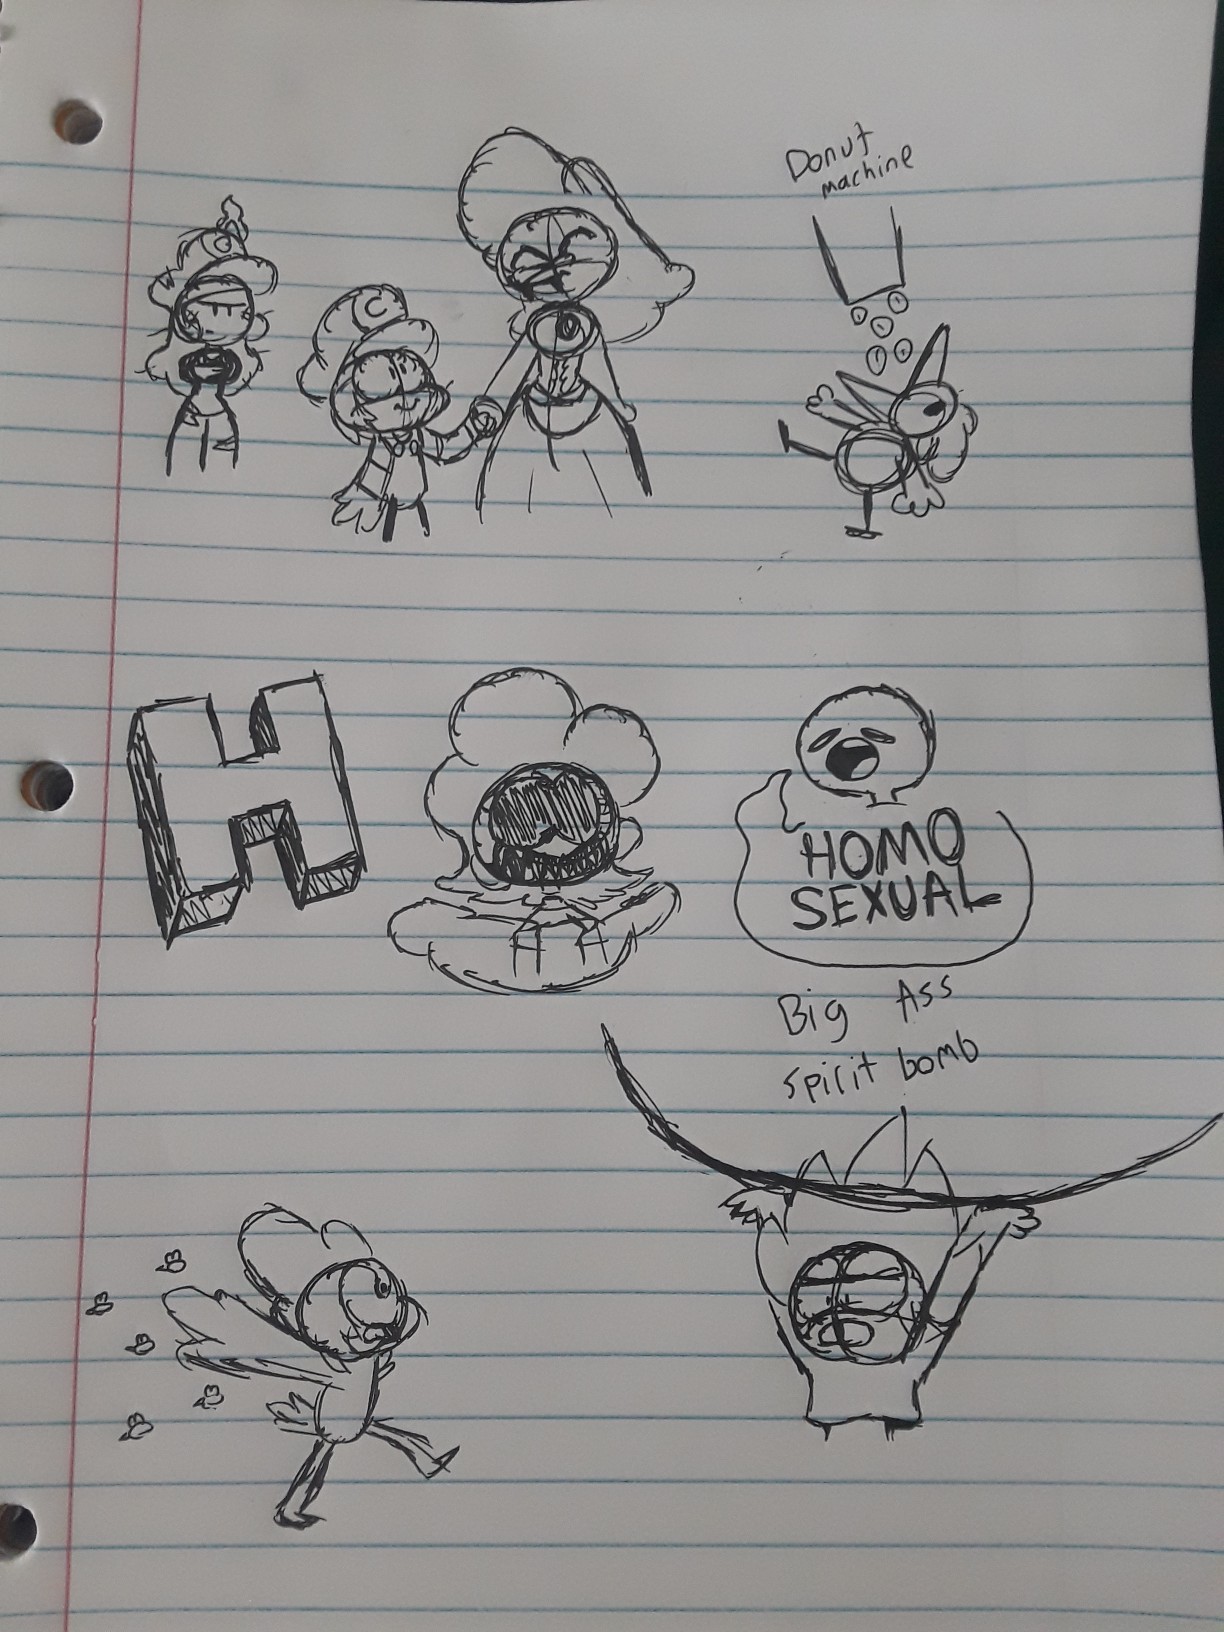 Donut
machine
H
HOMO
SEXUAL
Big Ass
spirit bomb